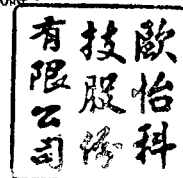 歐怡科
技股份
有限公司